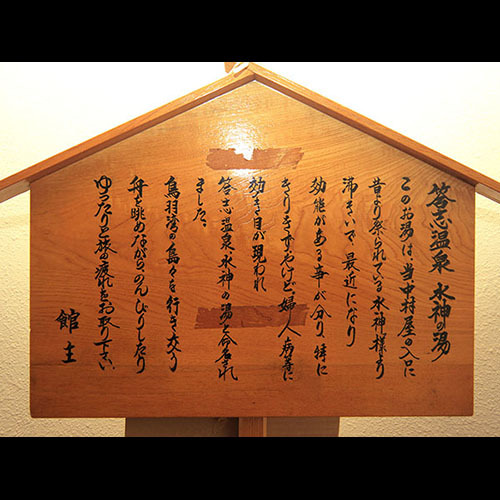 答志温泉 水神の湯
このお湯は、当中村屋の入口に
昔より祭られている水神様より
沸きいで、最近になり
効能がある事が分り、特に
きりきずやけど婦人病等に
効き目が現われ
答志温泉水神の湯と命名され
ました。
鳥羽湾の島々を行き交う
舟を眺めながらのんびりしたり
ゆったりと旅の疲れをお取り下さい
館主